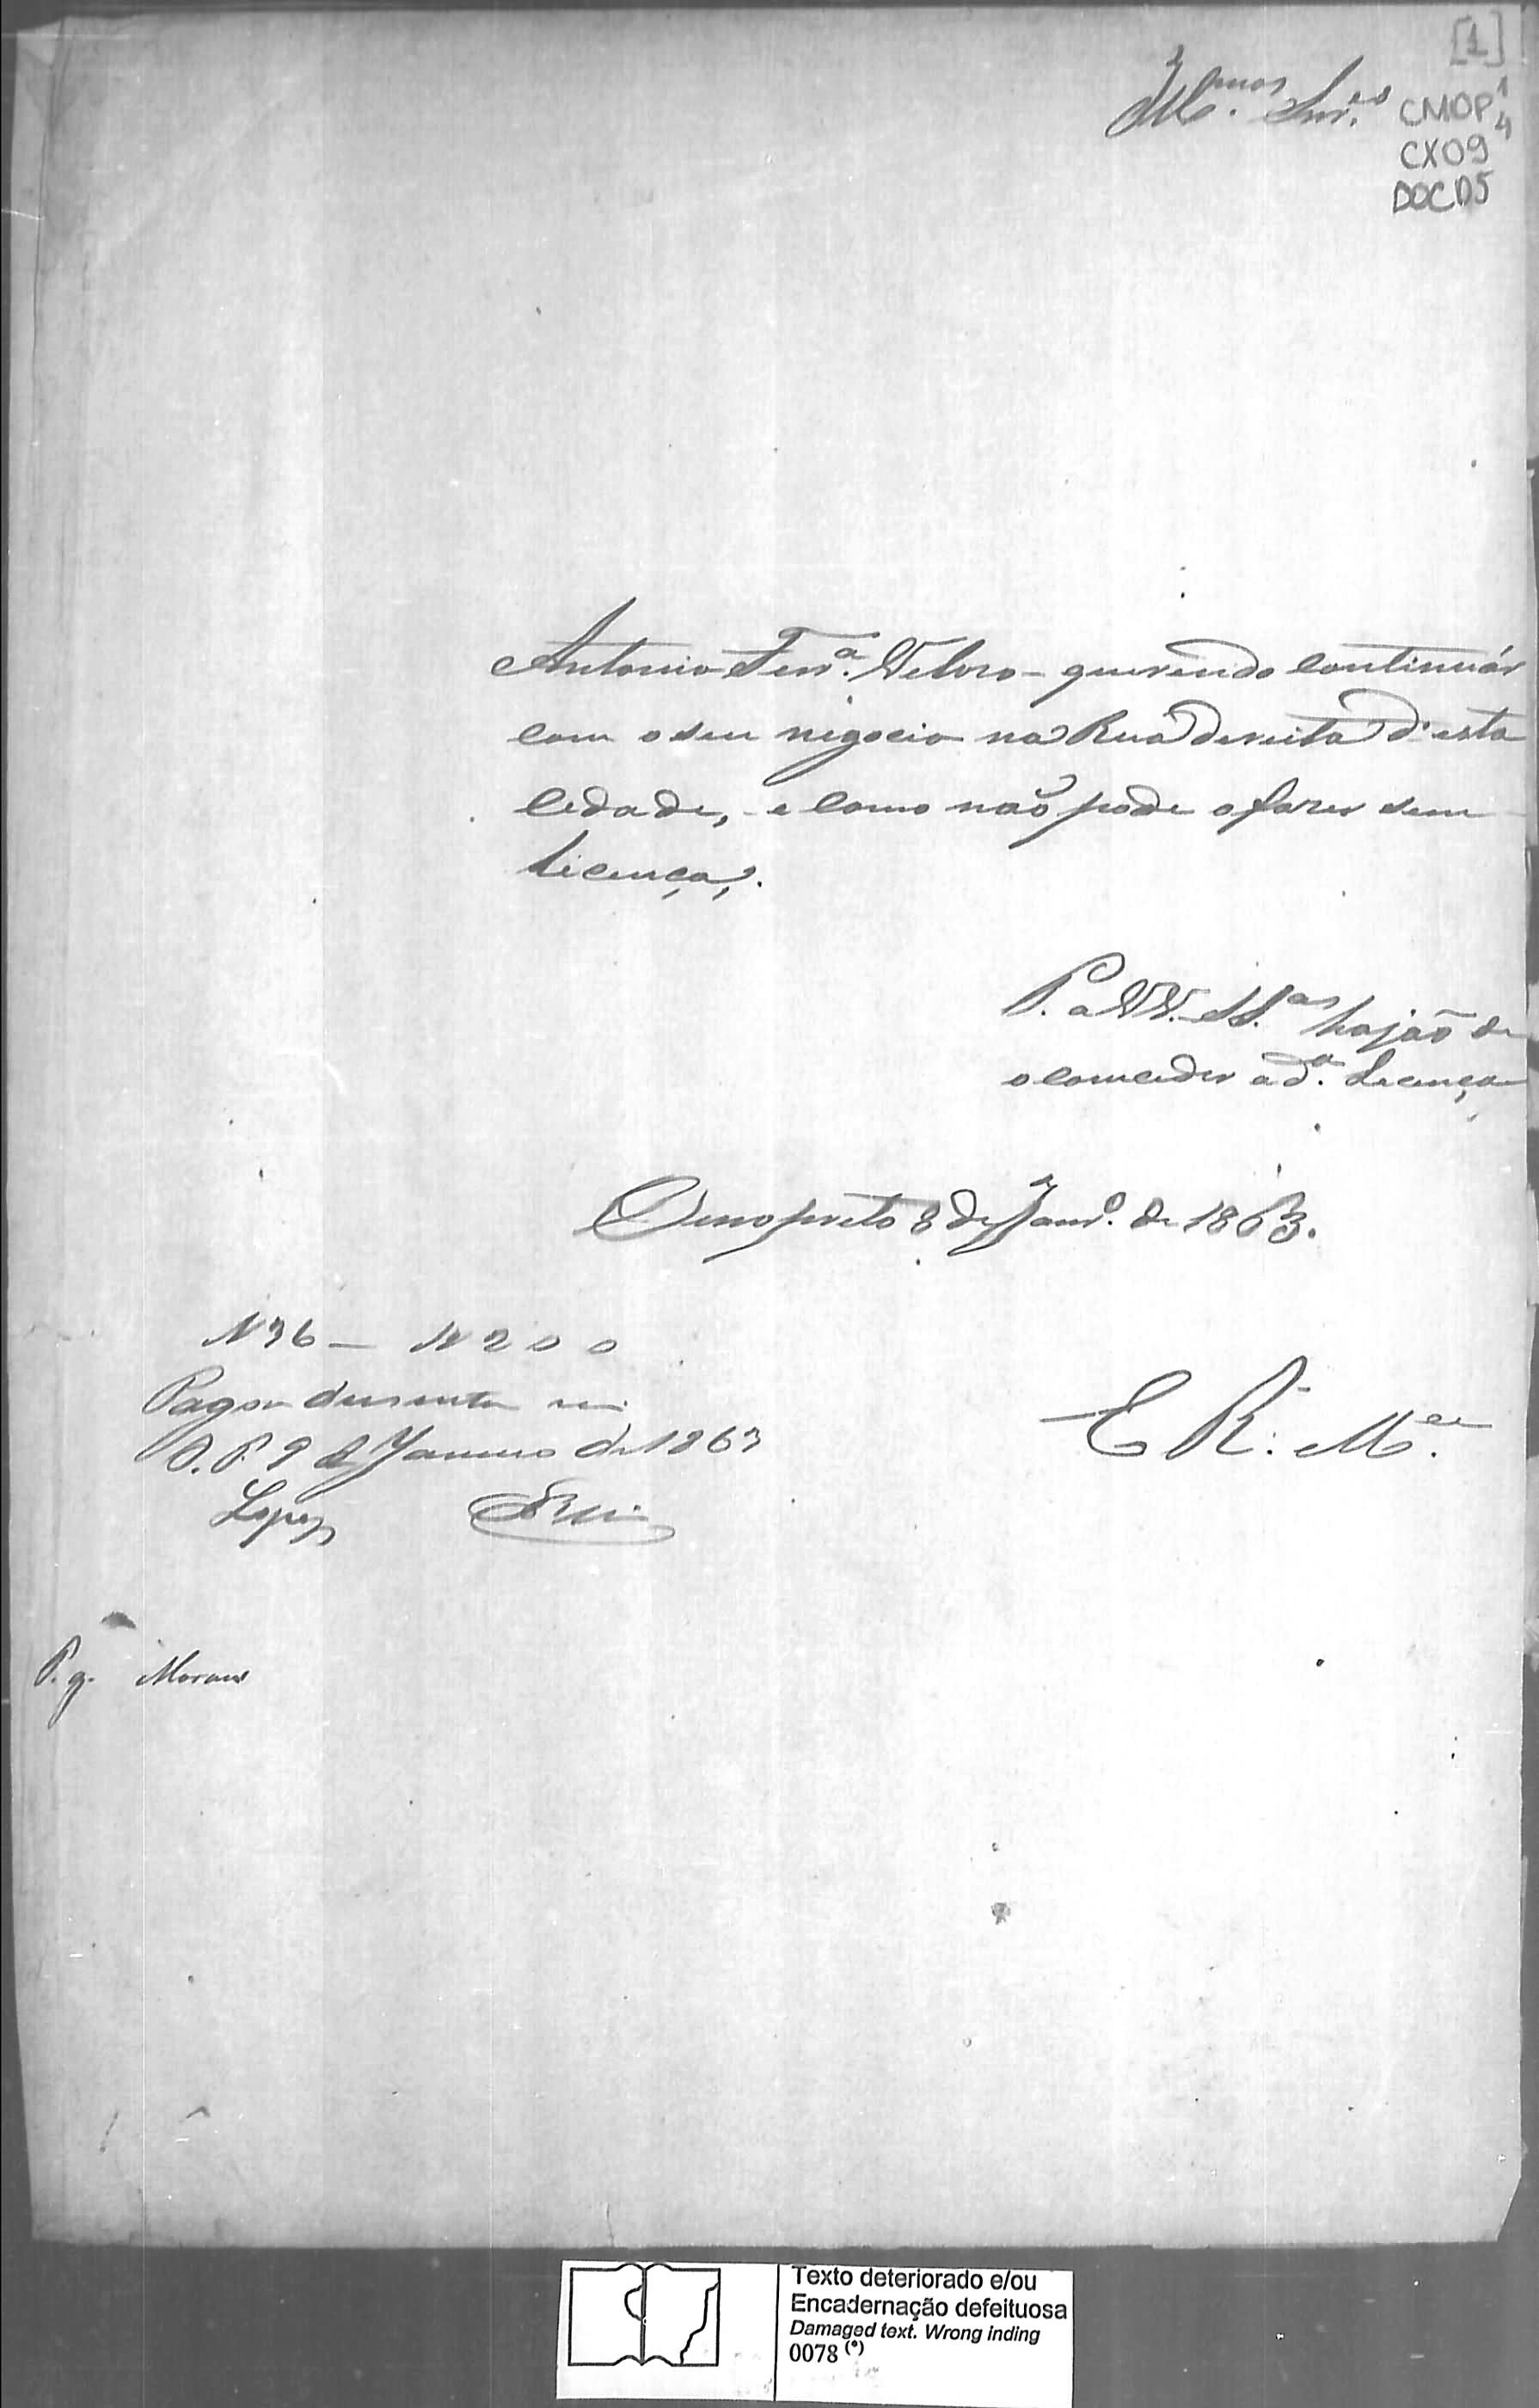 [1]
Ill.mos Snr.es
CMOP 1
4
CX09
DOC 05
Antonio Ferr.a Velozo - querendo continuár
com o seu negocio na Rua direita d'esta
Cidade, e como não pode o fazer sem
Licença,
P. a VV. SS.as hajão de
o comceder a d.a Licença
Ouro preto 8 de Janr.o de 1863.
N 36 — 200
Pagou dusentos reis
O. P. 9 de Janeiro de 1863
Lopes
E R. M.ce
P. g. Moraes
Texto deteriorado e/ou
Encadernação defeituosa
Damaged text. Wrong inding
0078 (*)